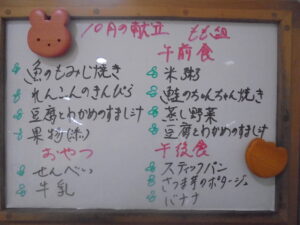 10月の献立 もも組
魚のもみじ焼き
れんこんのきんぴら
豆腐とわかめのすまし汁
果物(柿)
おやつ
せんべい
牛乳
午前食
米粥
鮭のちゃんちゃん焼き
蒸し野菜
豆腐とわかめのすまし汁
午後食
スティックパン
さつま芋のポタージュ
バナナ